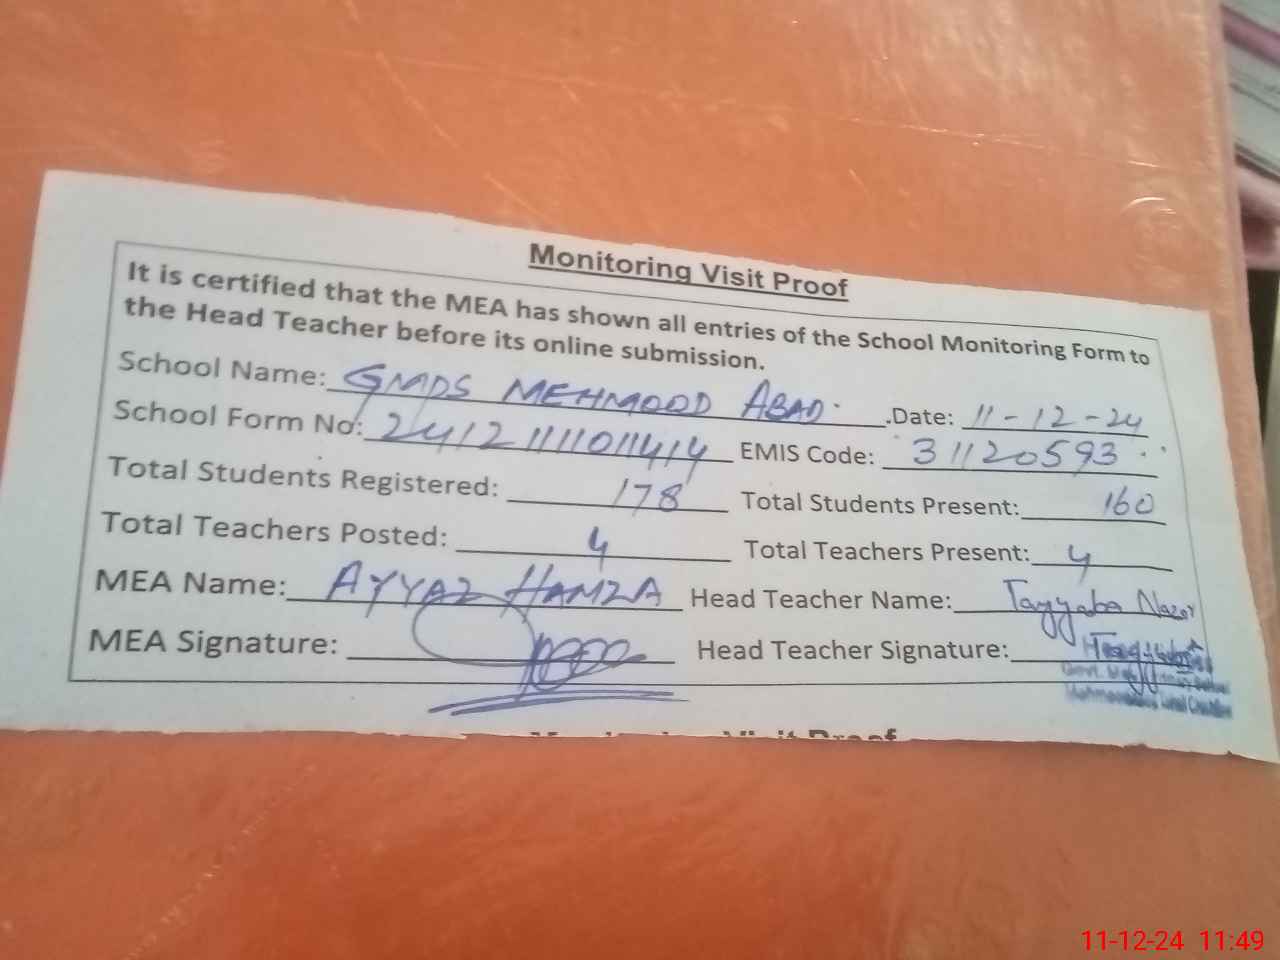 Monitoring Visit Proof
It is certified that the MEA has shown all entries of the School Monitoring Form to
the Head Teacher before its online submission.
School Name: GMPS MEHMOOD ABAD. .Date: 11-12-24
School Form No: 24121111011414 EMIS Code: 31120593
Total Students Registered: 178 Total Students Present: 160
Total Teachers Posted: 4 Total Teachers Present: 4
MEA Name: AYYAZ HAMZA Head Teacher Name: Tayyaba Nazer
MEA Signature: Head Teacher Signature:
Monitoring Visit Proof
11-12-24 11:49